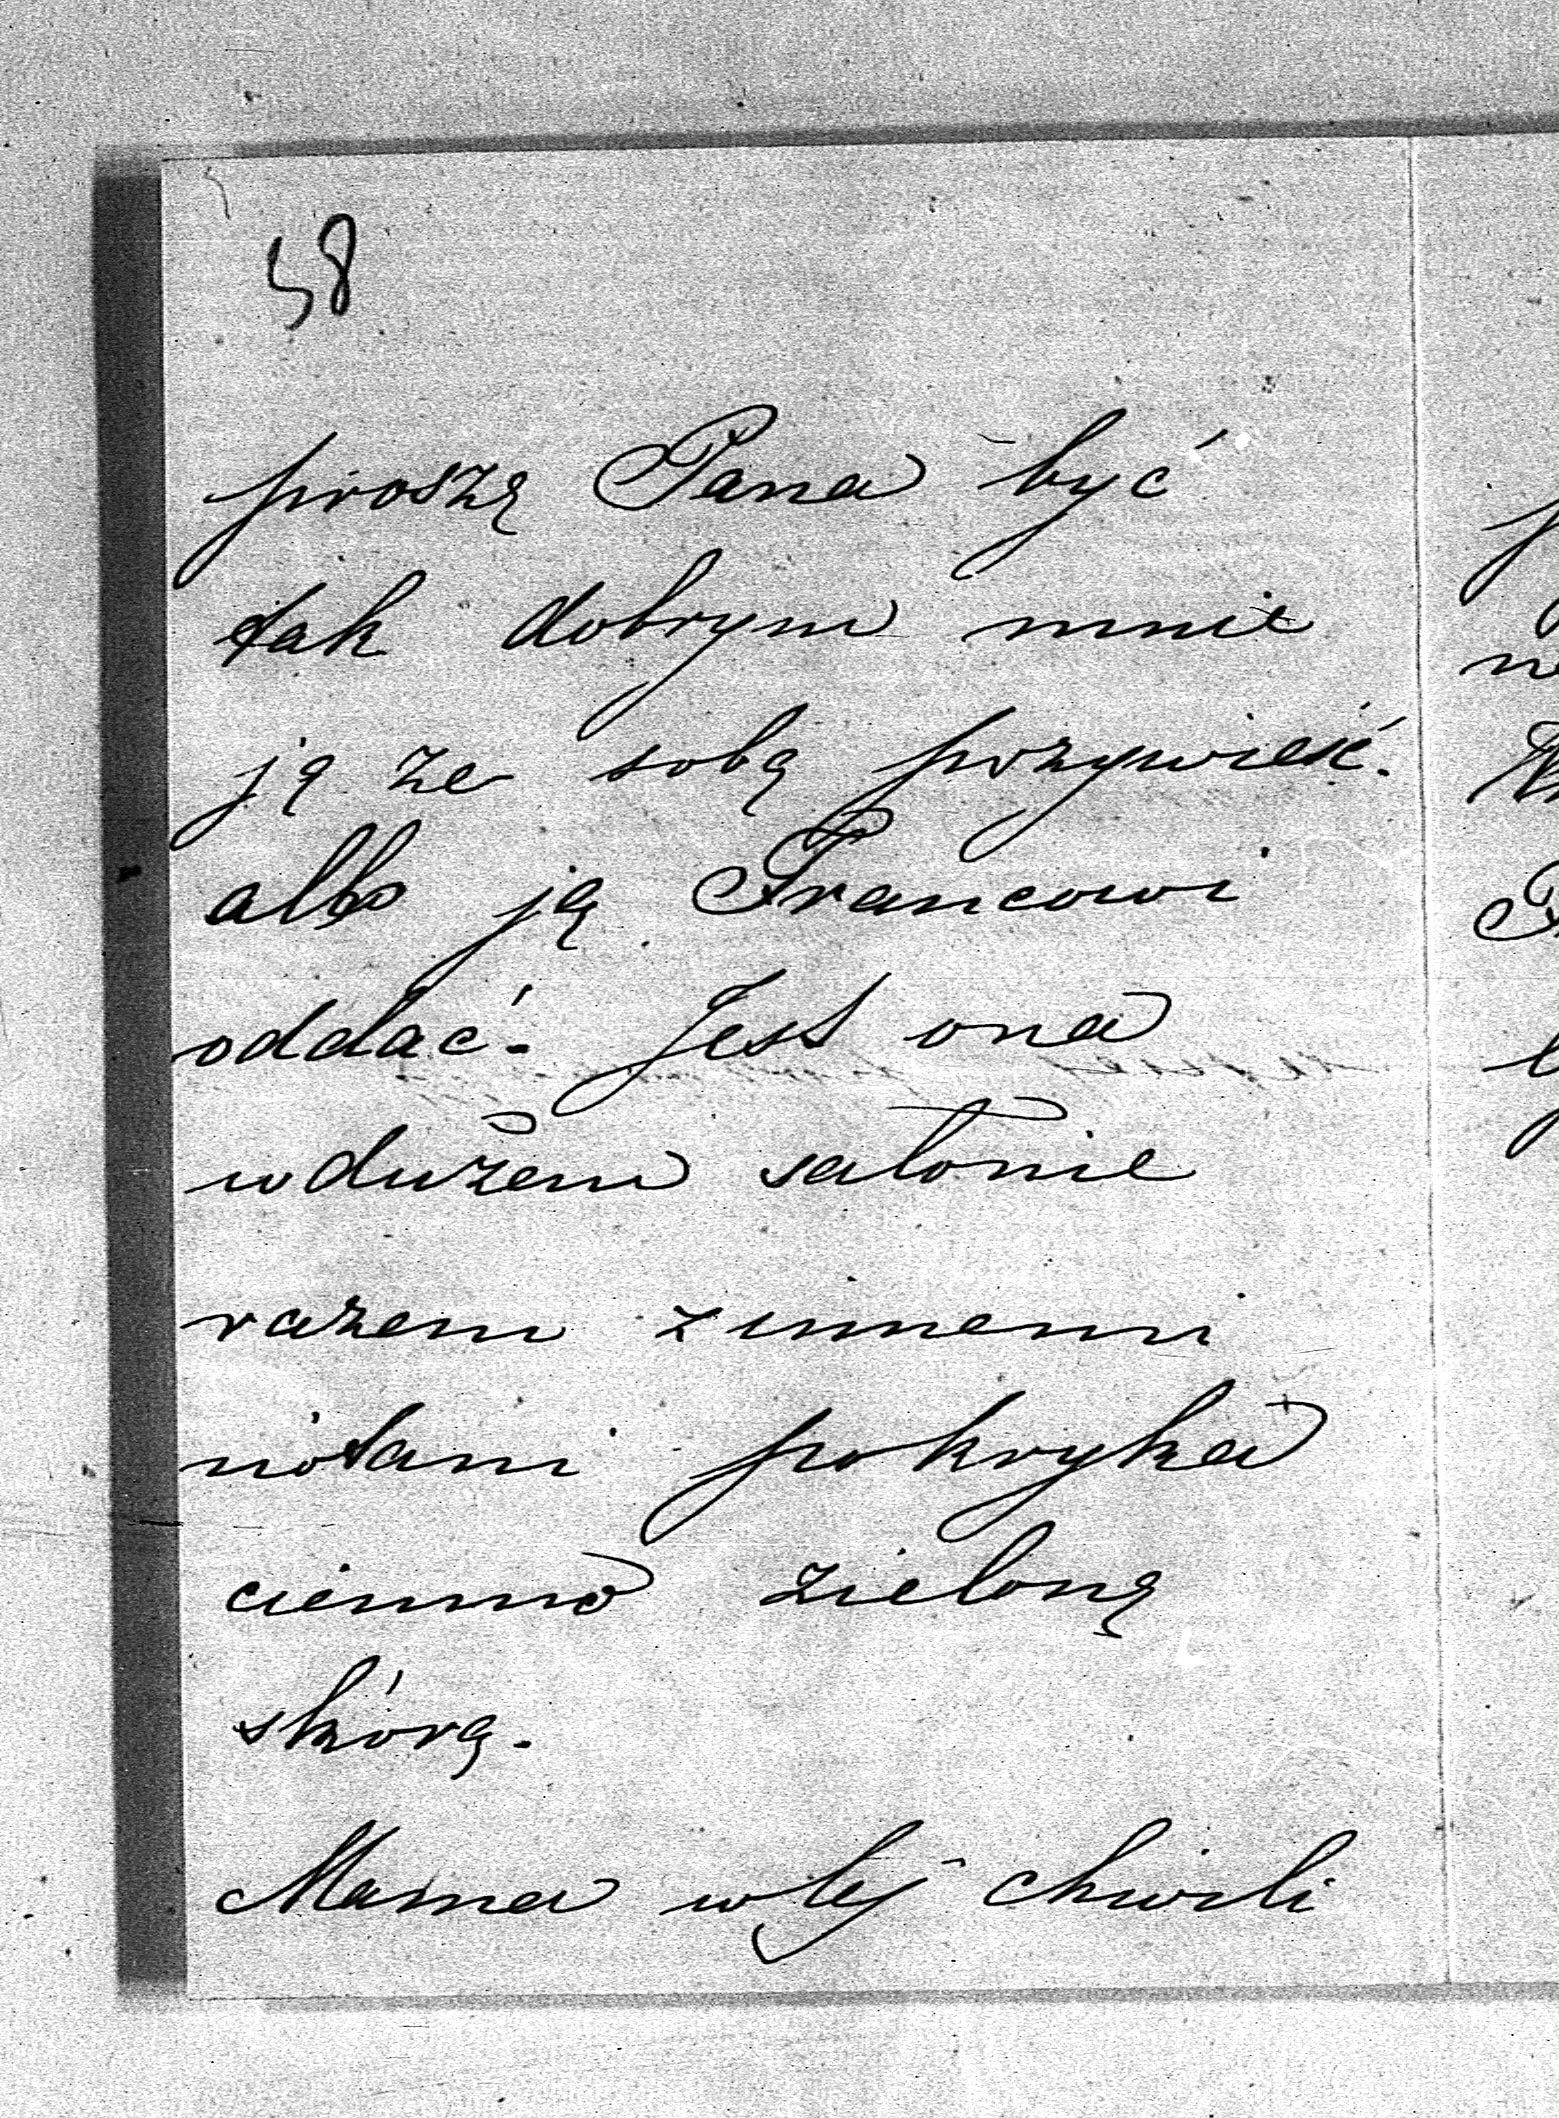 58
proszę Pana być
tak dobrym mnie
ją ze sobą przywieść.
albo ją Francowi
oddać. Jest ona
w dużem salonie
razem z innemi
nótami pokryka
ciemno zieloną
skórą.
Mama w tej chwili